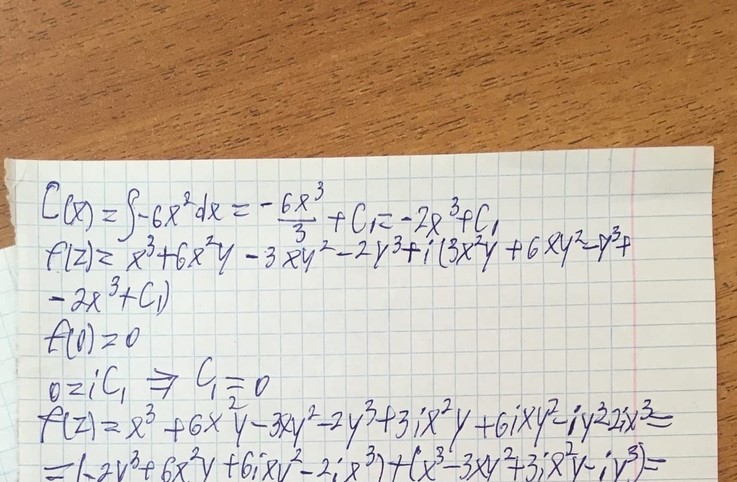 C(x) = ∫-6x²dx = -6x³/3 + C₁ = -2x³+C₁
f(z) = x³+6x²y -3xy²-2y³+i(3x²y +6xy²-y³+
-2x³+C₁)
f(0)=0
0=iC₁ ⇒ C₁=0
f(z)=x³+6x²y-3xy²-2y³+3ix²y+6ixy²-iy³-2ix³=
=(-2y³+6x²y+6ixy²-2ix³)+(x³-3xy²+3ix²y-iy³)=